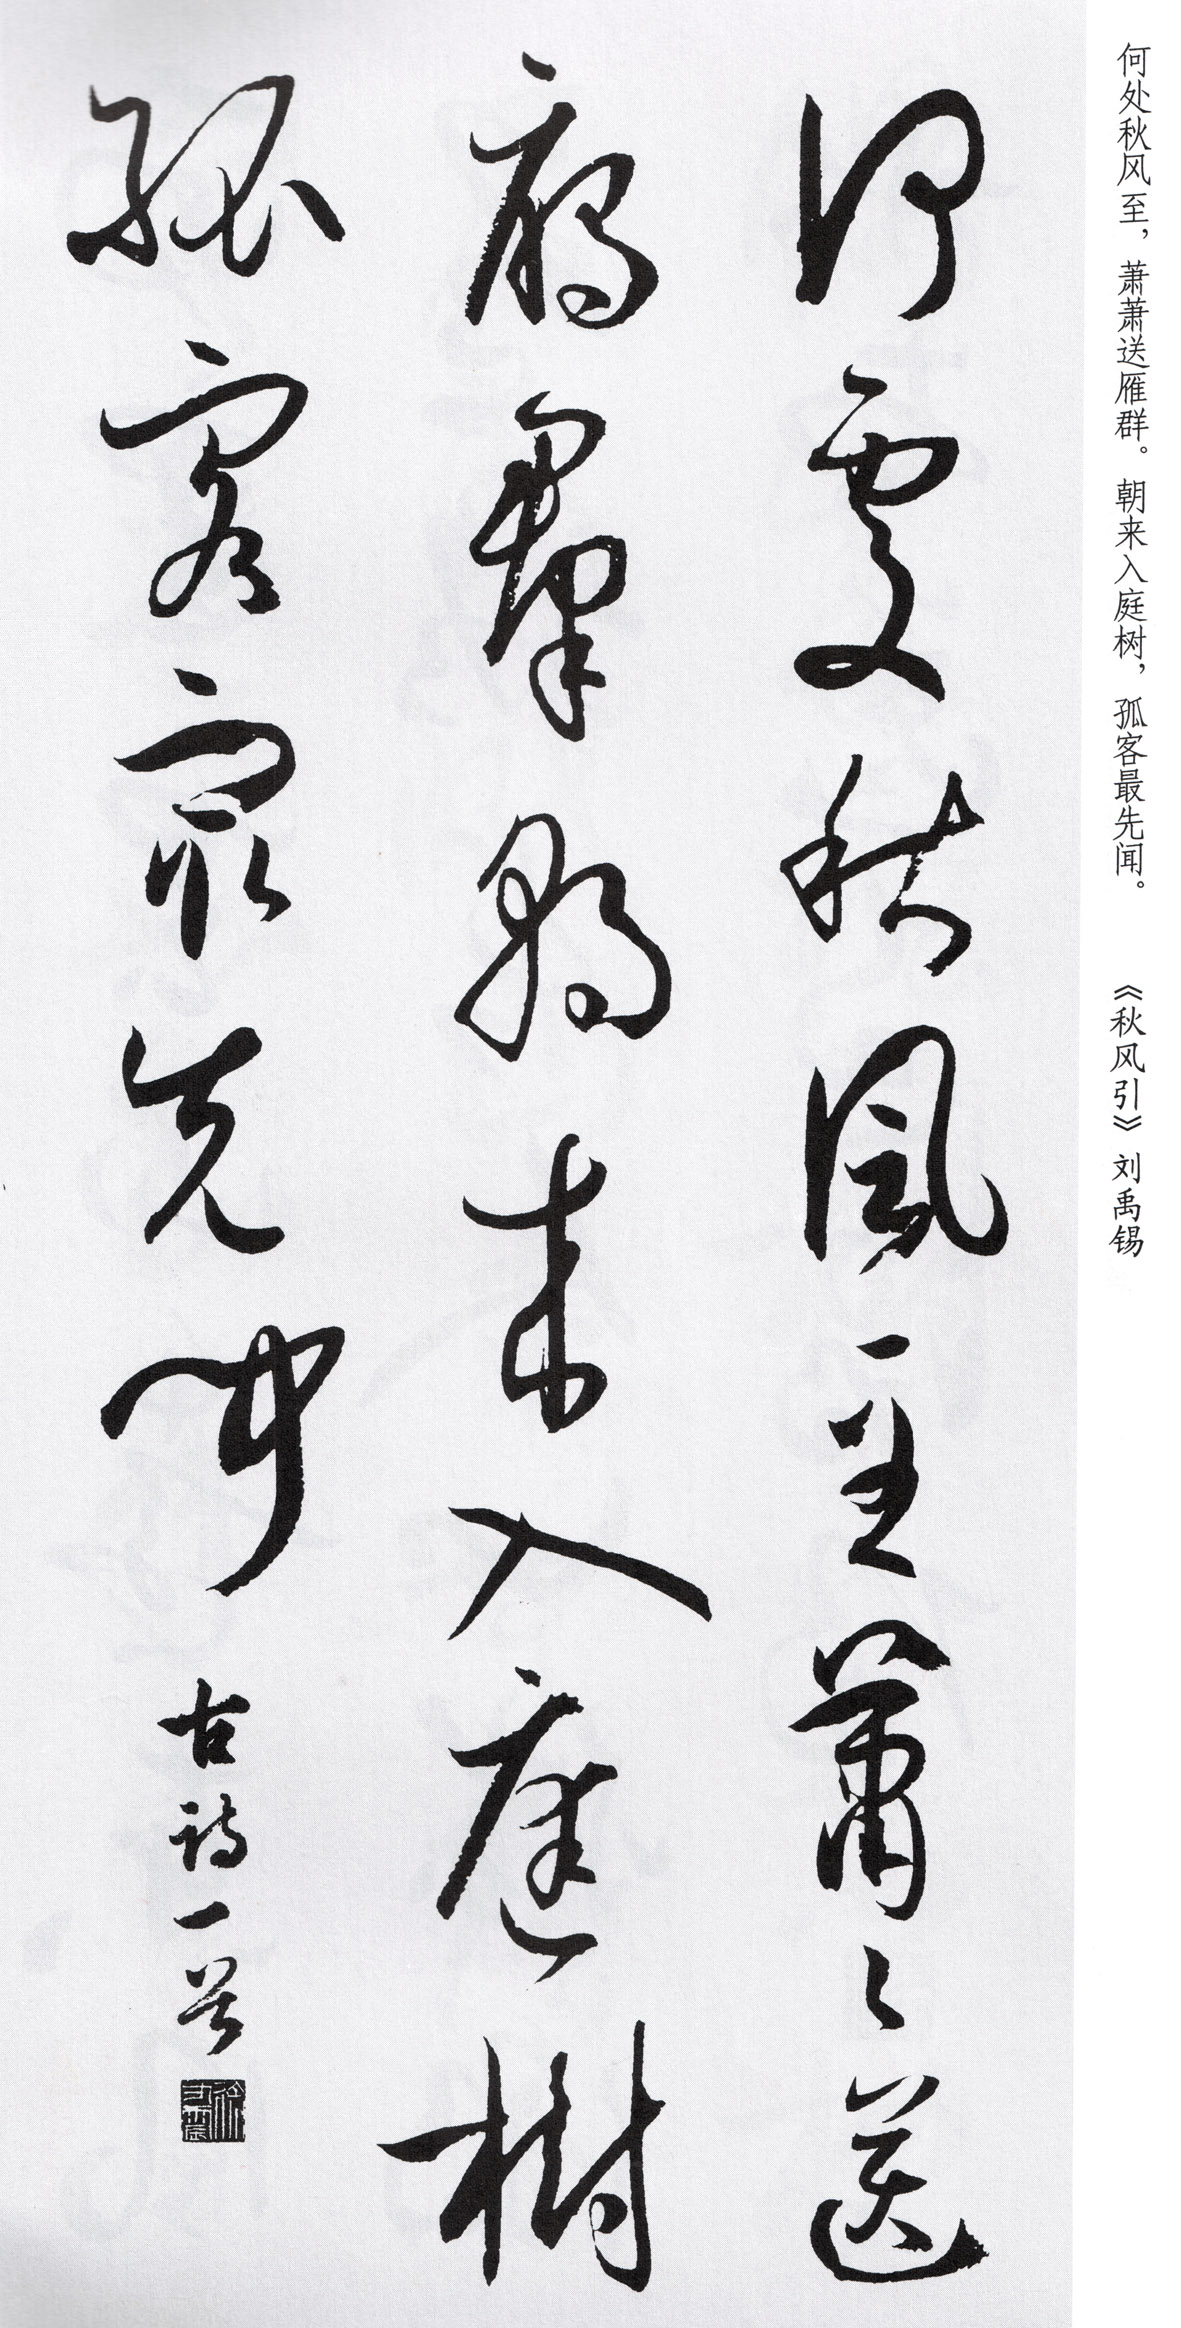 何处秋风至，萧萧送雁群。朝来入庭树，孤客最先闻。 《秋风引》 刘禹锡
何處秋風至蕭々送
雁群朝来入庭樹
孤客最先闻 古詩一首